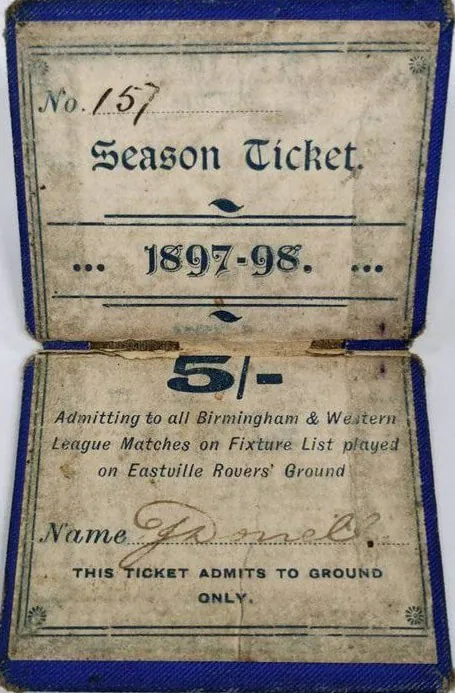 No. 157
Season Ticket.
... 1897-98. ...
5/-
Admitting to all Birmingham & Western
League Matches on Fixture List played
on Eastville Rovers' Ground
Name
THIS TICKET ADMITS TO GROUND
ONLY.